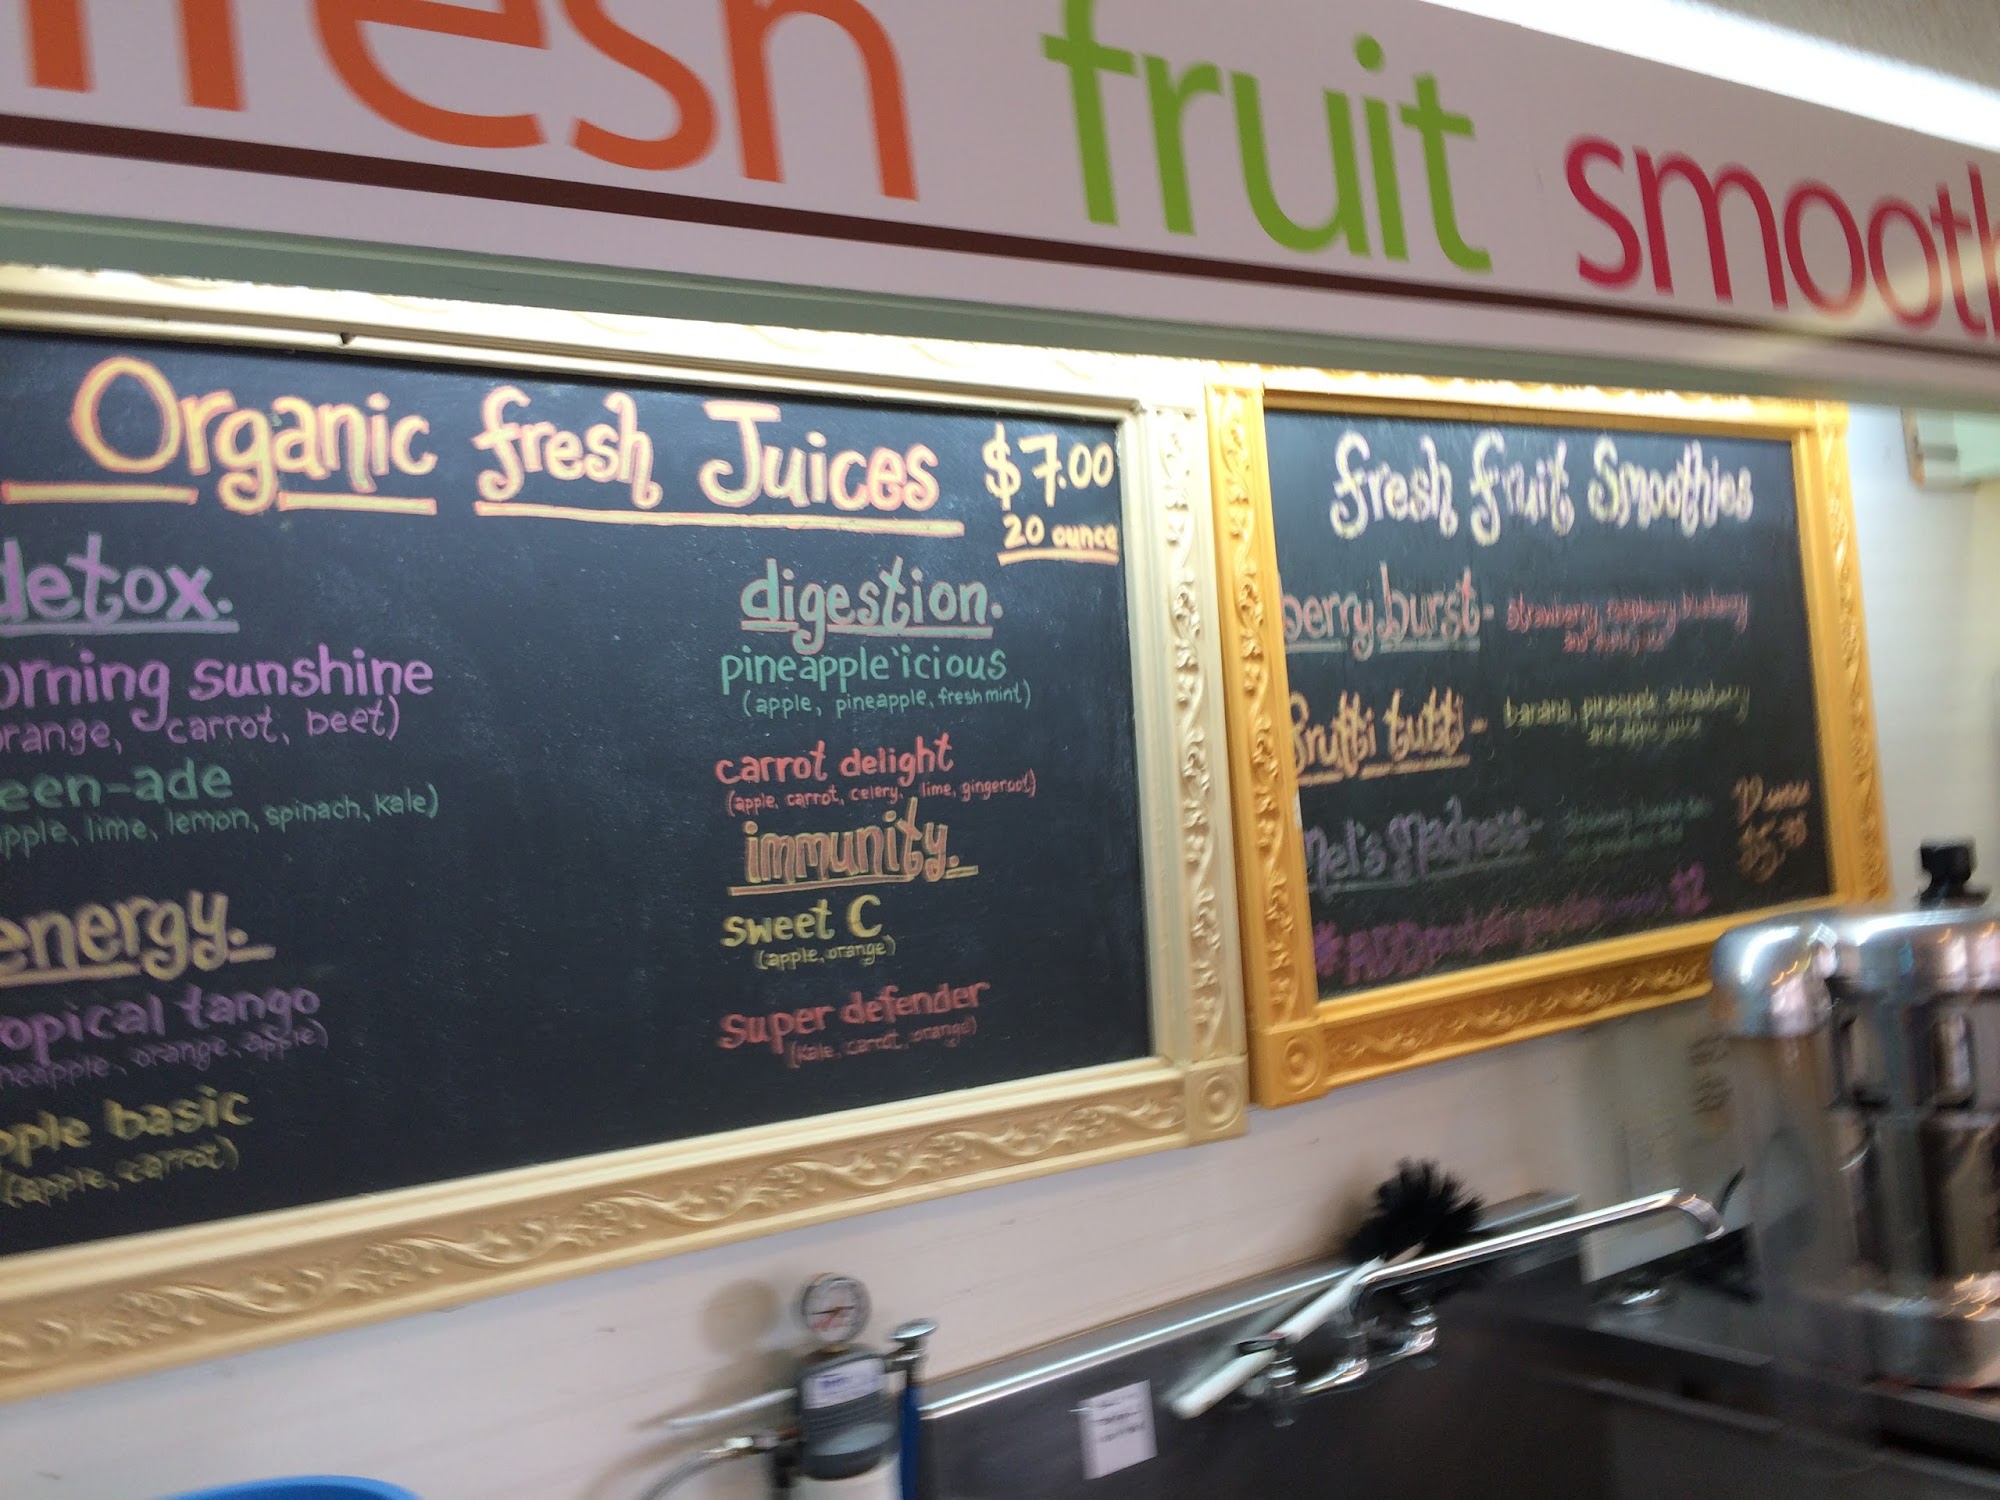 fresh fruit smooth
Organic fresh Juices $7.00
20 ounce
detox.
orning sunshine
orange, carrot, beet)
een-ade
apple, lime, lemon, spinach, kale)
energy.
ropical tango
neapple, orange, apple)
pple basic
(apple, carrot)
digestion.
pineapple'icious
(apple, pineapple, fresh mint)
carrot delight
(apple, carrot, celery, lime, gingeroot)
immunity.
sweet C
(apple, orange)
super defender
(kale, carrot, orange)
fresh fruit Smoothies
berry burst- strawberry, raspberry, blueberry
and apple juice
frutti tutti- banana, pineapple, strawberry
and apple juice
Mel's Madness-
* ADD protein $2